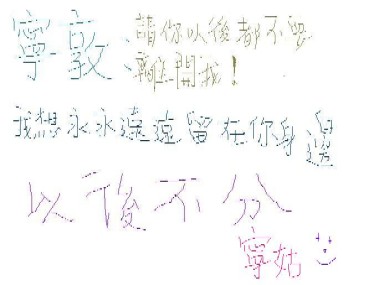 寧敦、請你以後都不要
離開我!
我想永永遠遠留在你身邊
以後不分
寧姑